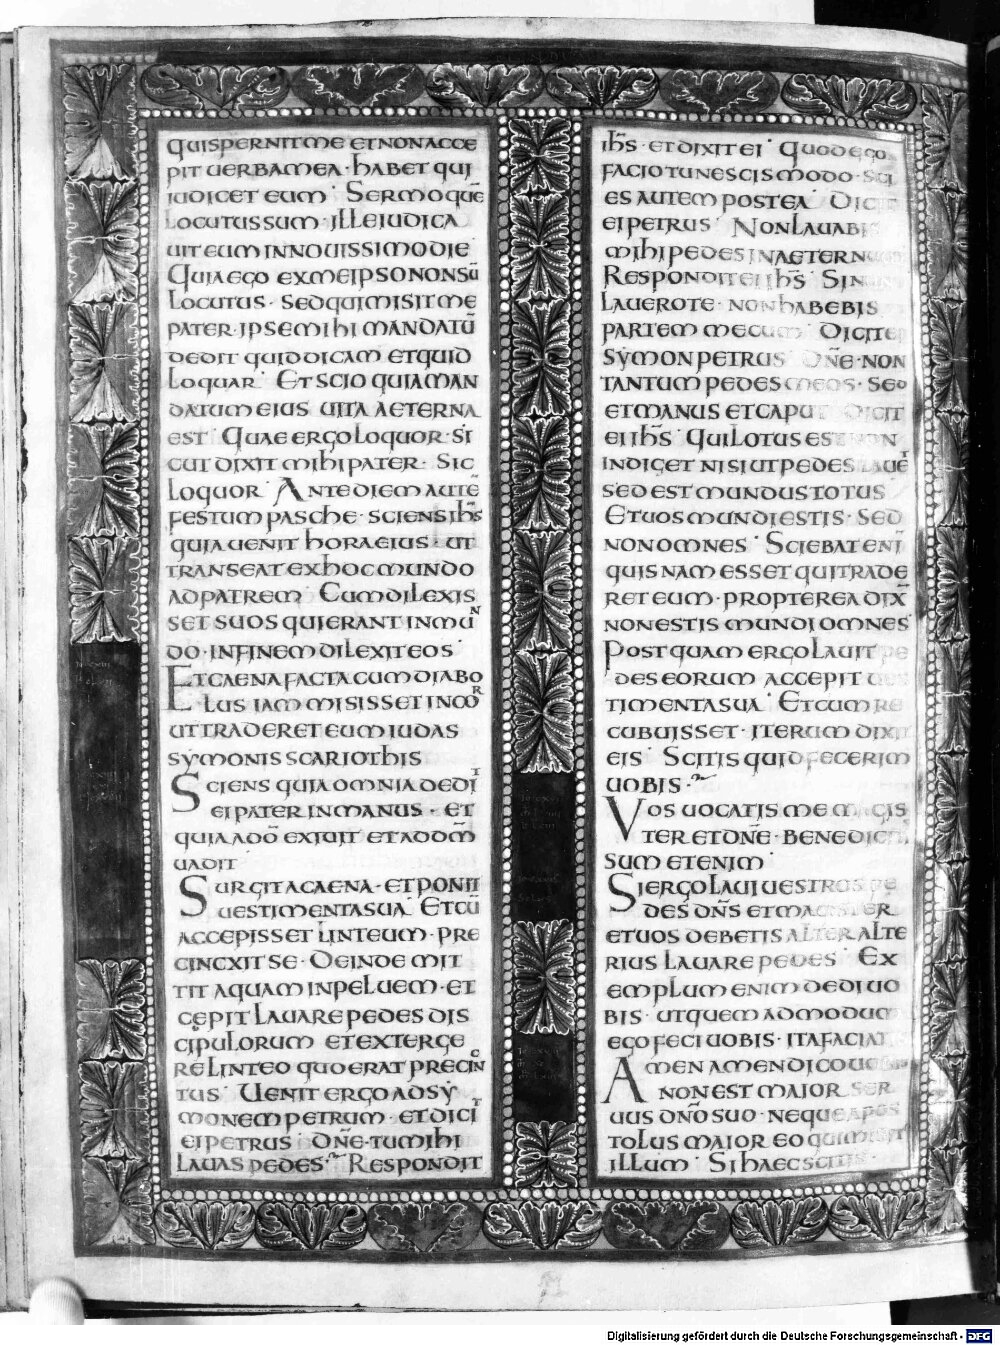 QUISPERNITME ETNONACCE
PIT UERBAMEA · HABET QUI
IUDICET EUM · SERMO QUĒ
LOCUTUSSUM · ILLEIUDICA
UIT EUM INNOUISSIMODIE
QUIAEGO EXMEIPSONONSŪ
LOCUTUS · SEDQUIMISITME
PATER · IPSEMIHI MANDATŪ
DEDIT QUIDDICAM ETQUID
LOQUAR · ETSCIO QUIAMAN
DATUM EIUS UITA AETERNA
EST · QUAE ERGO LOQUOR · SI
CUT DIXIT MIHI PATER · SIC
LOQUOR · ANTE DIEM AUTĒ
FESTUM PASCHE · SCIENS IHS
QUIA UENIT HORAEIUS · UT
TRANSEAT EXHOCMUNDO
ADPATREM · CUMDILEXIS
SET SUOS QUIERANT INMUN
DO · INFINEM DILEXITEOS
ETCAENAFACTACUMDIABO
LUS IAM MISISSET INCOR
UTTRADERET EUM IUDAS
SYMONIS SCARIOTHIS
SCIENS QUIA OMNIA DEDIT
EI PATER IN MANUS · ET
QUIA A DŌ EXIUIT ET AD DŌM
UADIT
SURGIT A CAENA · ET PONIT
UESTIMENTA SUA · ET CŪ
ACCEPISSET LINTEUM · PRE
CINCXIT SE · DEINDE MIT
TIT AQUAM IN PELUEM · ET
CĘPIT LAUARE PEDES DIS
CIPULORUM ET EXTERGE
RE LINTEO QUO ERAT PRECIN
TUS · UENIT ERGO AD SY
MONEM PETRUM · ET DICIT
EI PETRUS · DNE · TU MIHI
LAUAS PEDES · RESPONDIT
IHS · ET DIXIT EI · QUOD EGO
FACIO TU NESCIS MODO · SCI
ES AUTEM POSTEA · DICIT
EI PETRUS · NON LAUABIS
MIHI PEDES IN AETERNUM
RESPONDIT EI IHS · SI NON
LAUERO TE · NON HABEBIS
PARTEM MECUM · DICIT EI
SYMON PETRUS · DNE · NON
TANTUM PEDES MEOS · SED
ET MANUS ET CAPUT · DICIT
EI IHS · QUI LOTUS EST NON
INDIGET NISI UT PEDES LAUĒT
SED EST MUNDUS TOTUS
ET UOS MUNDI ESTIS · SED
NON OMNES · SCIEBAT ENI
QUISNAM ESSET QUI TRADE
RET EUM · PROPTEREA DIX
NON ESTIS MUNDI OMNES
POSTQUAM ERGO LAUIT PE
DES EORUM ACCEPIT UES
TIMENTA SUA · ET CUM RE
CUBUISSET · ITERUM DIXIT
EIS · SCITIS QUID FECERIM
UOBIS ·
VOS UOCATIS ME MAGIS
TER ET DNE · BENE DICITIS
SUM ETENIM ·
SI ERGO LAUI UESTROS PE
DES DNS ET MAGISTER
ET UOS DEBETIS ALTER ALTE
RIUS LAUARE PEDES · EX
EMPLUM ENIM DEDI UO
BIS · UT QUEM AD MODUM
EGO FECI UOBIS · ITA FACIAT
AMEN AMEN DICO UOBIS
NON EST MAIOR SER
UUS DNO SUO · NEQUE APOS
TOLUS MAIOR EO QUI MISIT
ILLUM · SI HAEC SCITIS ·
Digitalisierung gefördert durch die Deutsche Forschungsgemeinschaft - DFG